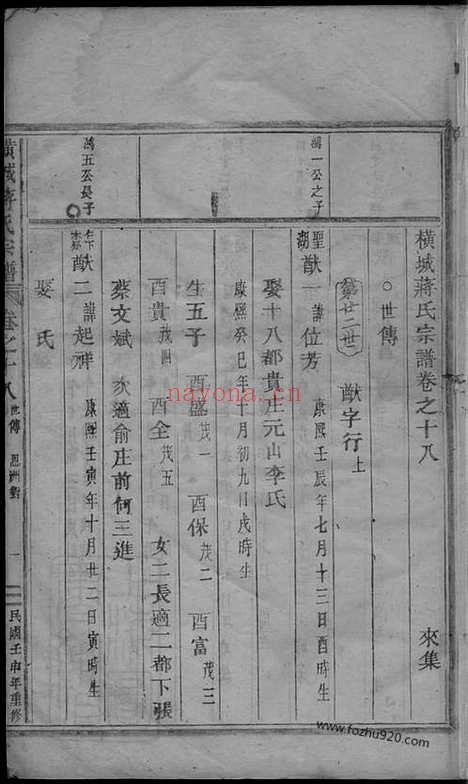 橫城蔣氏宗譜卷之十八　來集
○世傳
第廿二世　猷字行上
鴻一公之子
聖湖　猷一　諱位芳　康熙壬辰年七月十三日酉時生
娶十八都貴庄元山李氏
康熙癸巳年十月初九日戌時生
生五子　酉盛茂一　酉保茂二　酉富茂三
酉貴茂四　酉全茂五　女二長適二都下張
蔡文斌　次適俞庄前何三進
鴻五公長子
猷二　諱起祥　康熙壬寅年十月廿二日寅時生
娶　氏
橫城蔣氏宗譜　卷之十八　世傳　恩洲對　一　民國壬申年重修
nayona.cn
www.fozhu920.com